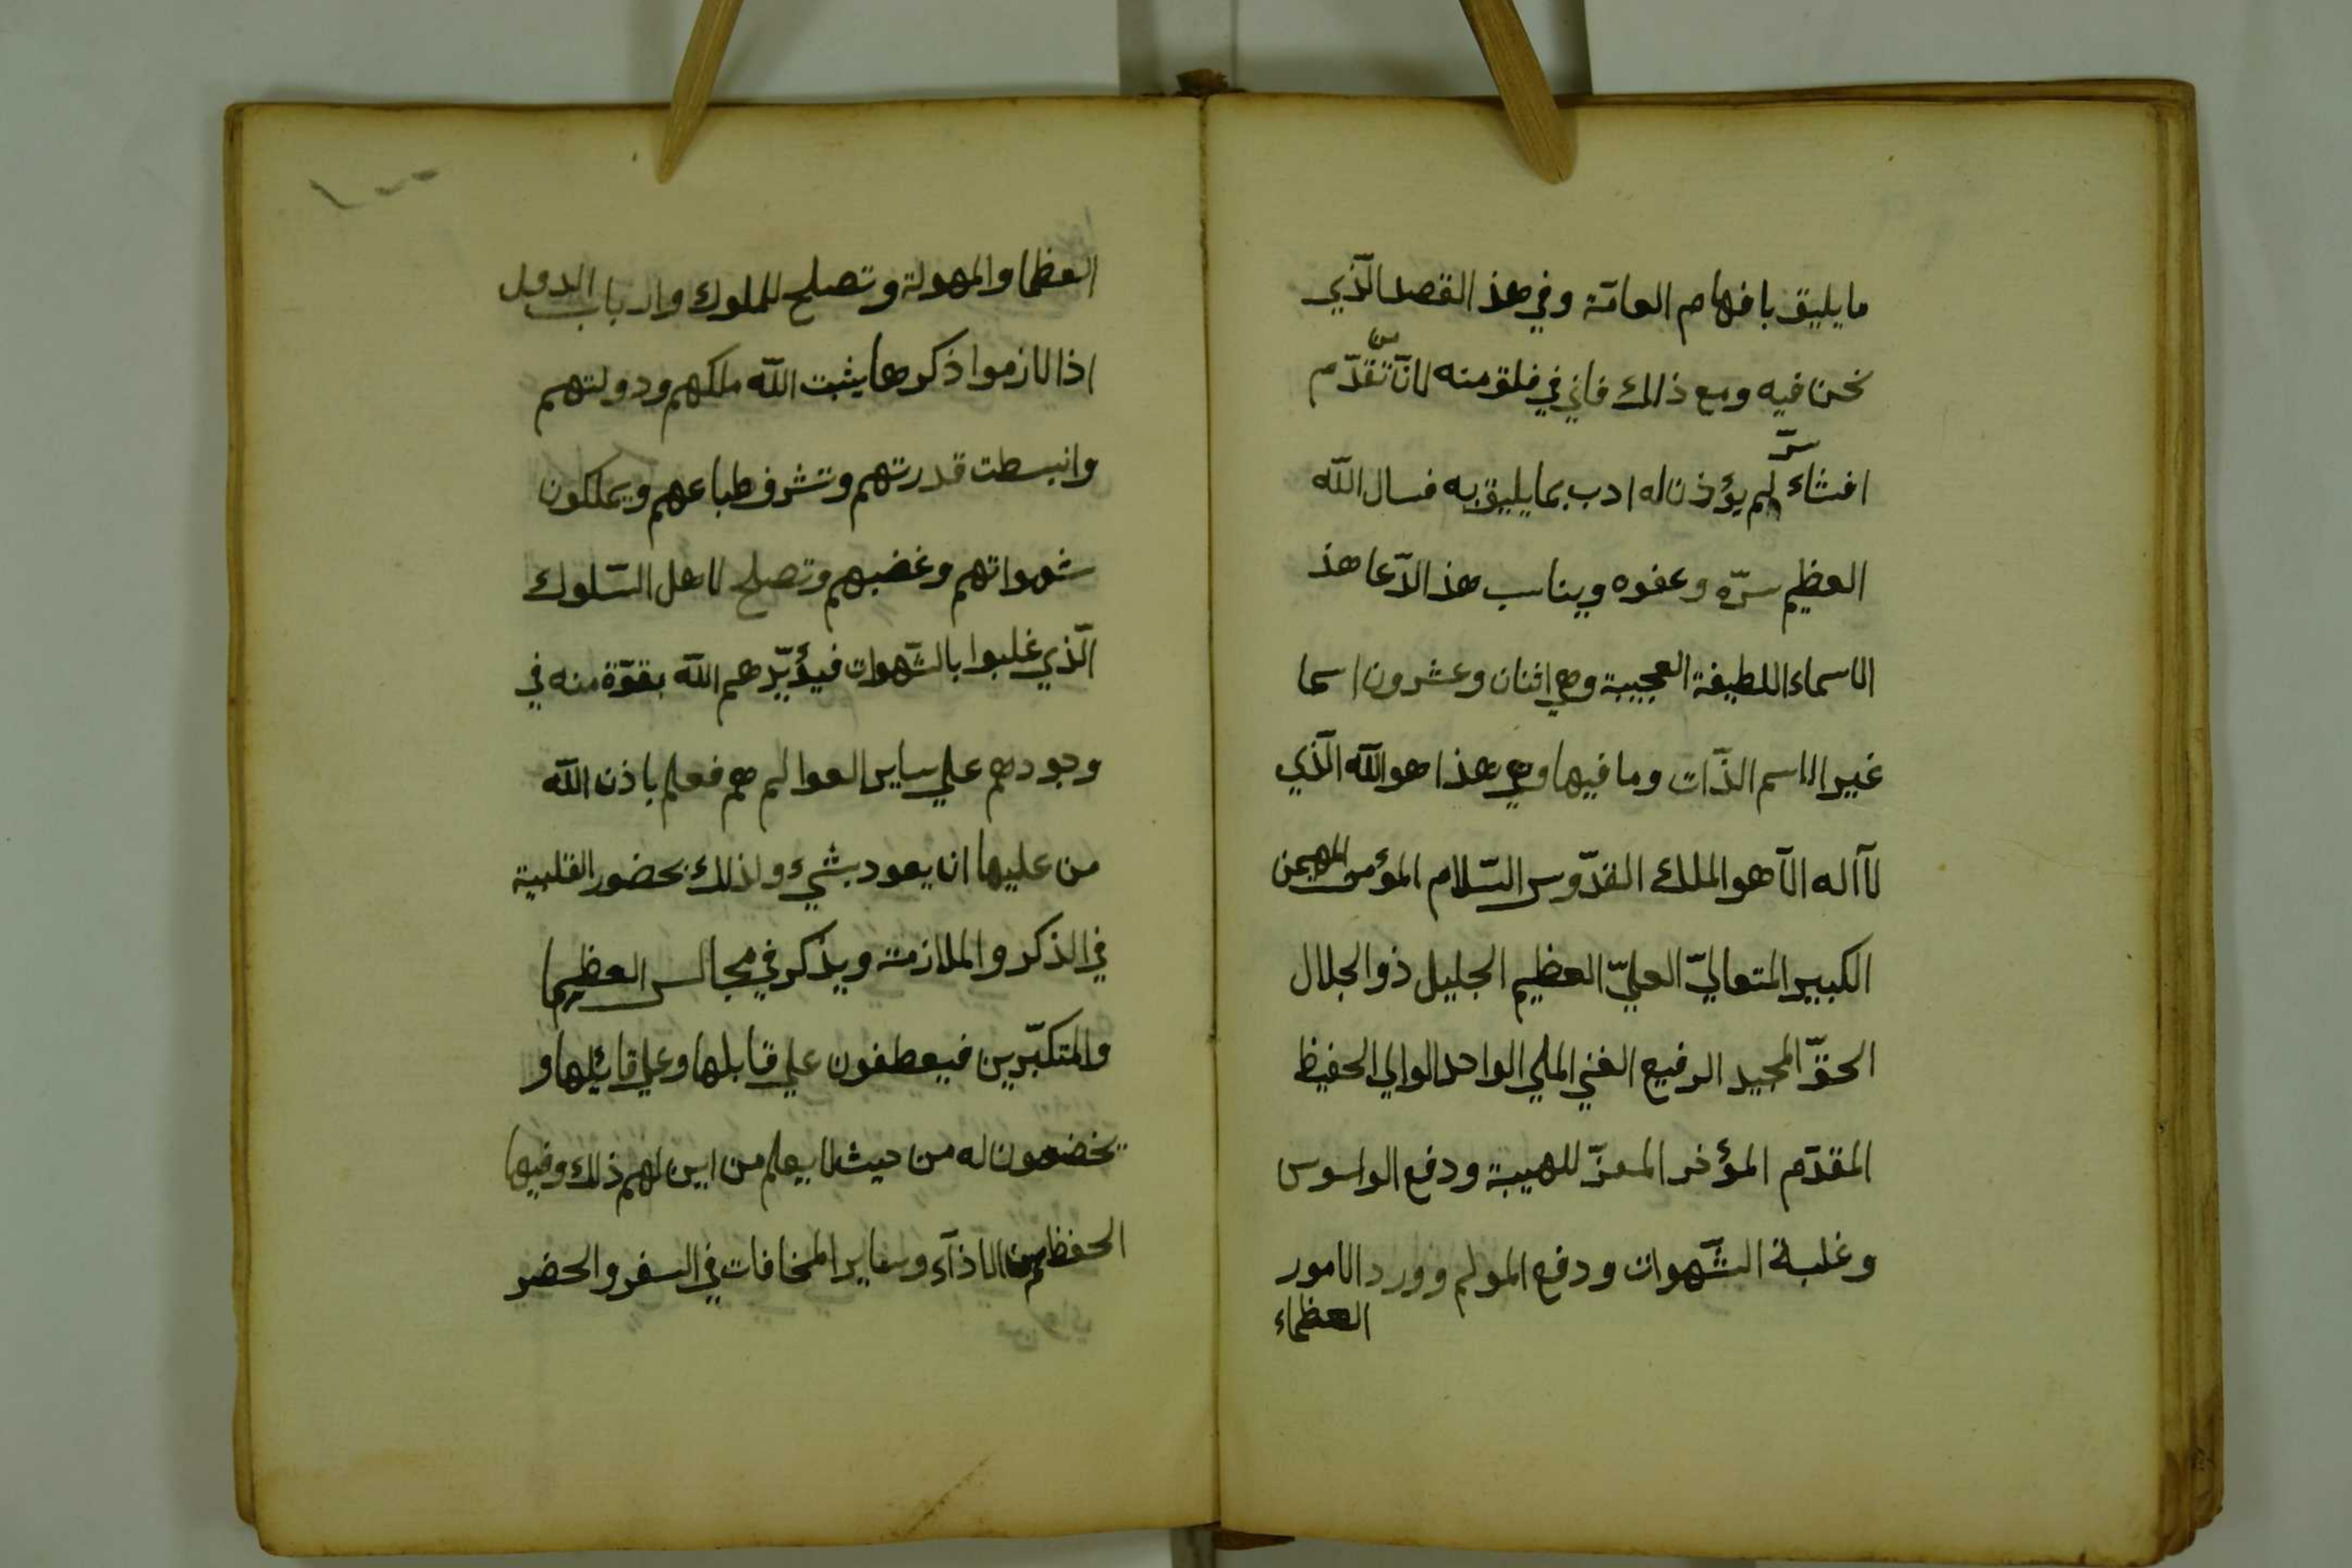 ما يليق بافهام العامّة وفي هذ القصد الّذي
نحن فيه ومع ذالك فاني في فلق منه لانّ من تقدّم
افشاء سرّ لم يؤذن له ادب بما يليق به فسال اللّه
العظيم سرّه وعفوه ويناسب هذ الدّعا هذ
الاسماء اللطيفة العجيبة وهي اثنان وعشرون اسما
غير الاسم الذّات وما فيها وهي هذا هو اللّه الّذي
لآ اله الآ هو الملك القدّوس السّلام المؤمن المهيمن
الكبير المتعاليّ العليّ العظيم الجليل ذو الجلال
الحقّ المجيد الرفيع الغني الملي الواحد الوالي الحفيظ
المقدّم المؤخر المعزّ للهيبة ودفع الواسوس
وغلبة الشّهوات ودفع المولم وورد الامور
العظماء
العظما والمهولة وتصلح للملوك وارباب الدول
اذا لازموا ذكرها يثبت اللّه ملكهم ودولتهم
وانبسطت قدرتهم وتشرف طباعهم ويملكون
شهواتهم وغضبهم وتصلح لاهل السّلوك
الّذي غلبوا بالشّهوات فيؤيّدهم اللّه بقوّة منه في
وجودهم علي ساير العوالم هم فعلم باذن اللّه
من عليها ان يعود بشيء ولذلك بحضور القلبية
في الذكر والملازمة ويذكر في مجالس العظيما
والمتكبّرين فيعطفون علي قابلها وعلي قائلها و
يخضعون له من حيث لا يعلم من اين لهم ذلك وفيها
الحفظ من الاذآء وساير المخافات في السفر والحضر